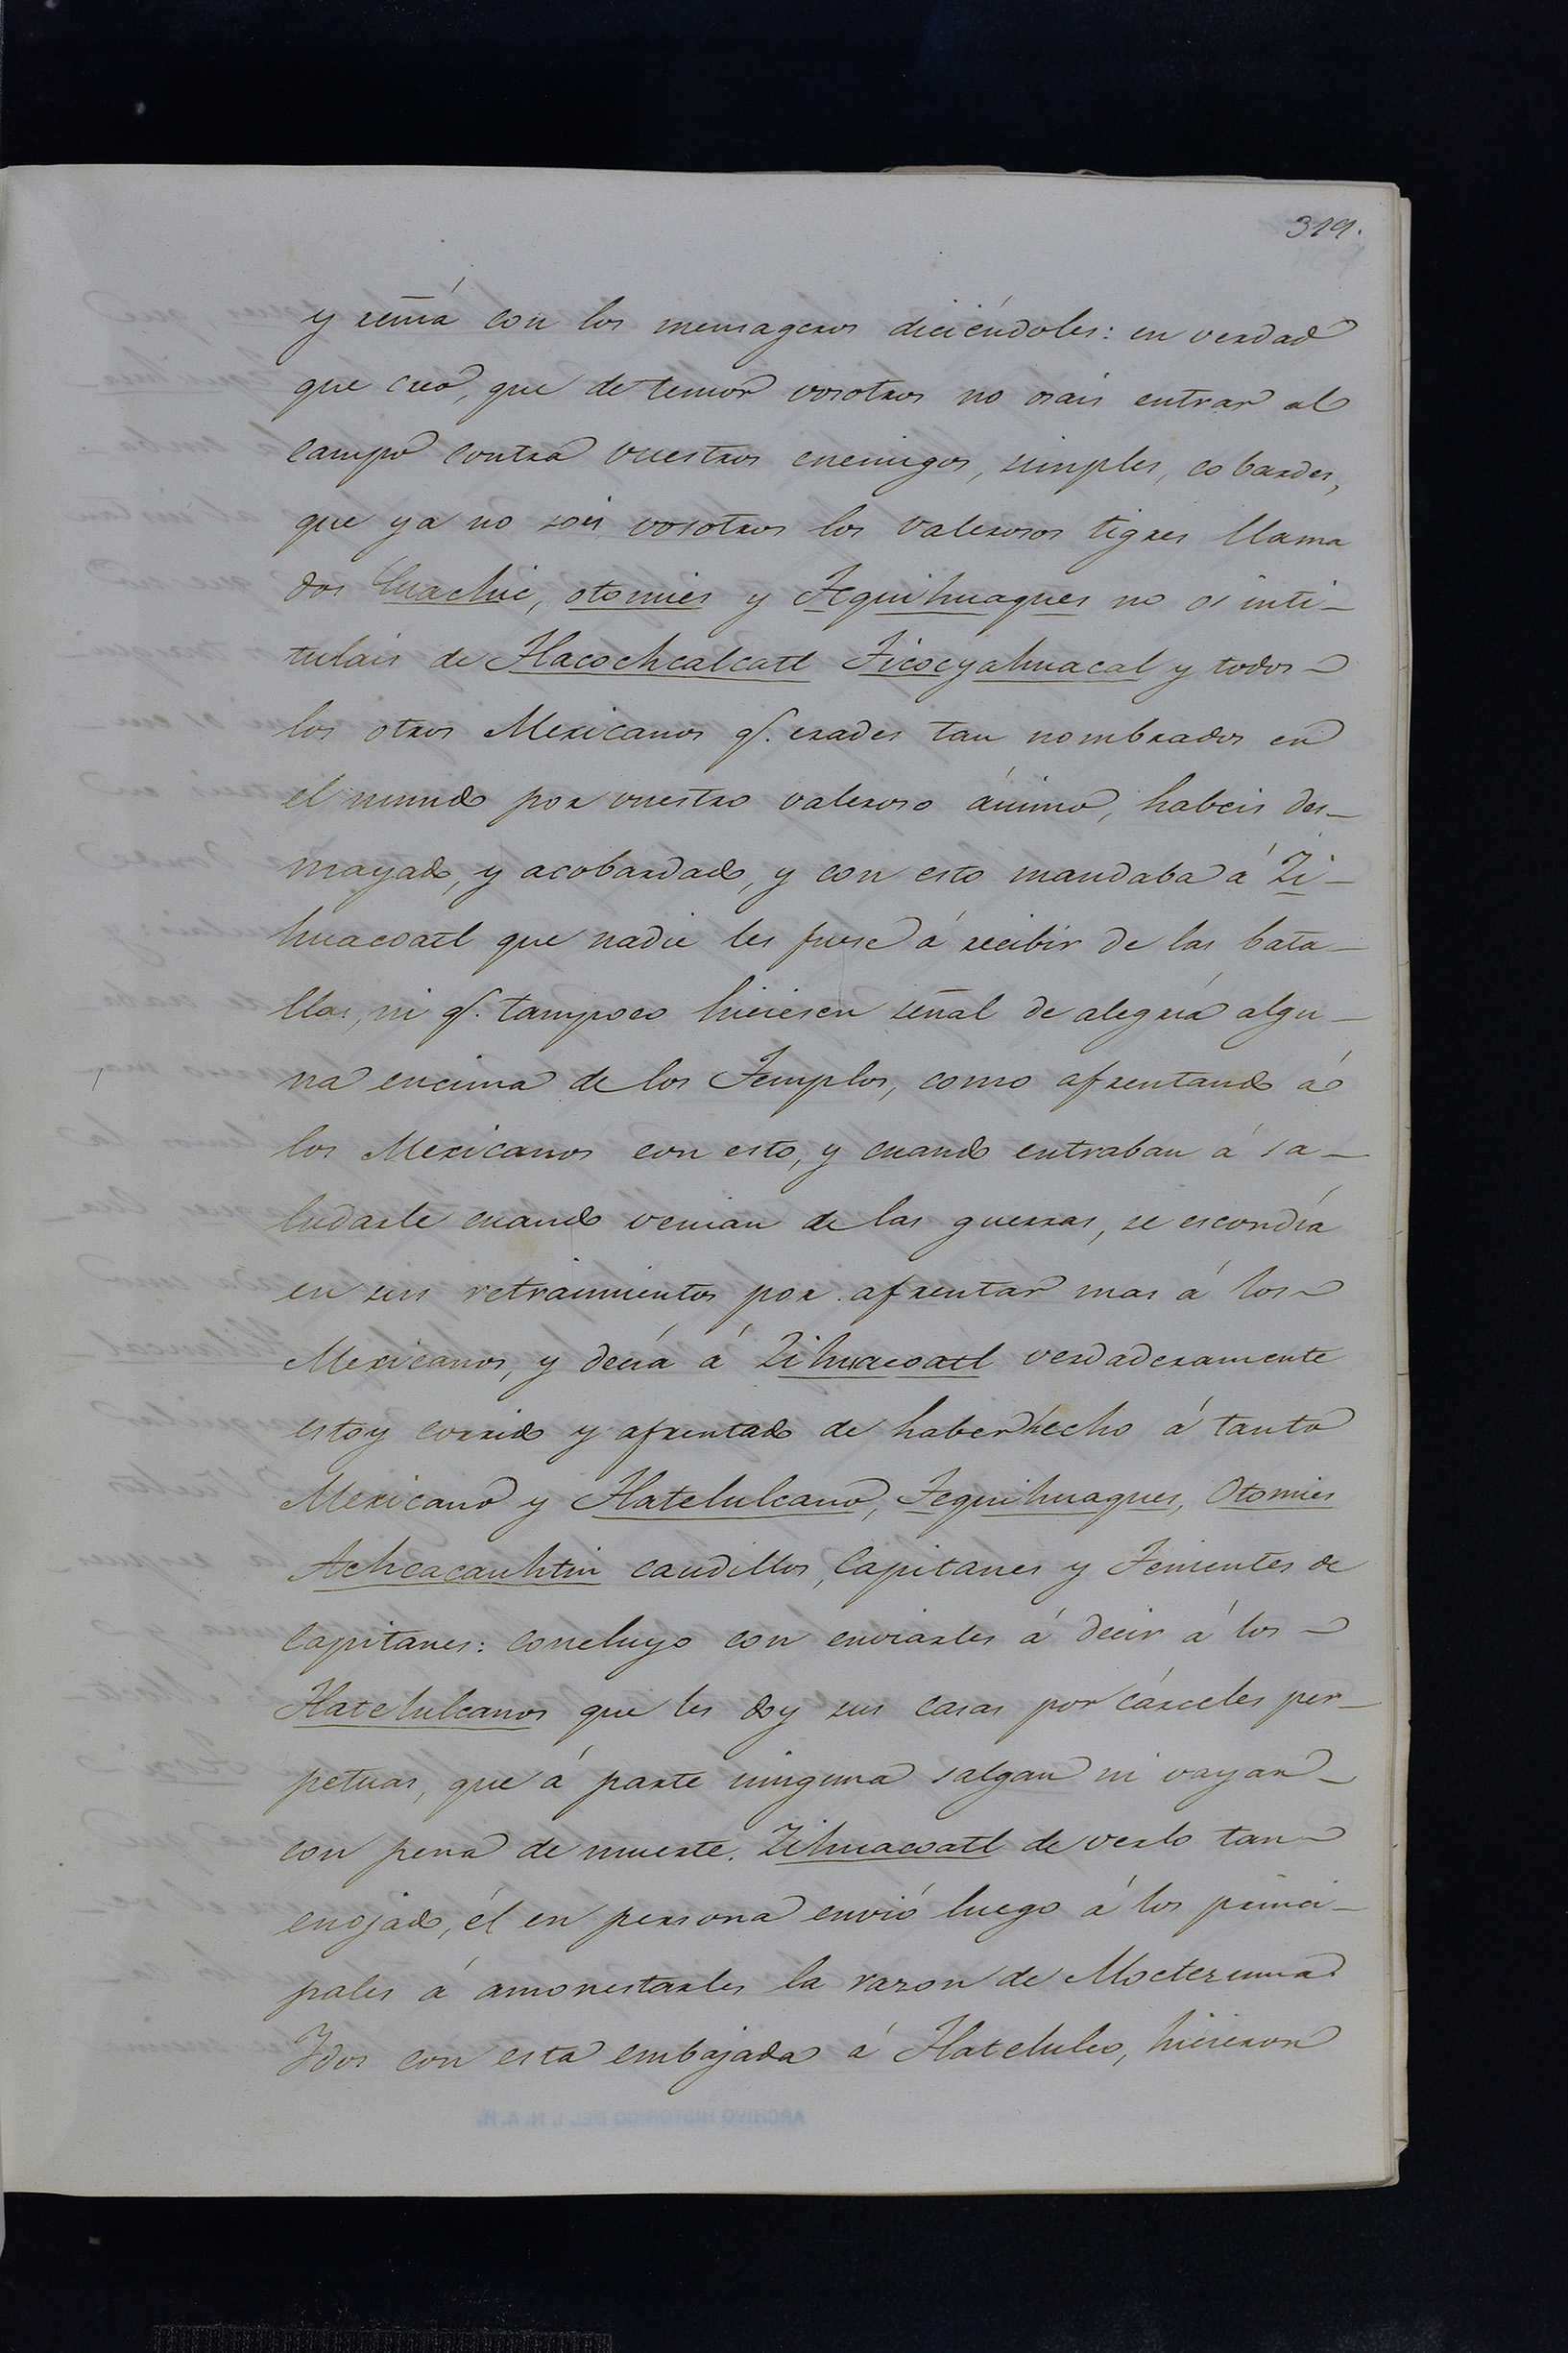 319.
y reñía con los mensageros diciéndoles: en verdad
que creo, que de temor vosotros no osais entrar al
campo contra vuestros enemigos, simples, cobardes,
que ya no sois vosotros los valerosos tigres llama
dos Cuachic, otomies y Tequihuaques no os inti-
tulais de Tlacochcalcatl Ticocyahuacal y todos
los otros Mexicanos q.e erades tan nombrados en
el mundo por vuestro valeroso ánimo, habeis des-
mayado, y acobardado, y con esto mandaba á Zi-
huacoatl que nadie les fuese á recibir de las bata-
llas, ni q.e tampoco hiciesen señal de alegría algu-
na encima de los Templos, como afrentando á
los Mexicanos con esto, y cuando entraban á sa-
ludarle cuando venian de las guerras, se escondía
en sus retraimientos por afrentar mas á los
Mexicanos, y decía á Zihuacoatl verdaderamente
estoy corrido y afrentado de haber hecho á tanto
Mexicano y Tlatelulcano, Tequihuaques, Otomies
Achcacauhtin caudillos, Capitanes y Tenientes de
Capitanes: concluyo con enviarles á decir á los
Tlatelulcanos que les doy sus casas por cárceles per-
petuas, que á parte ninguna salgan ni vayan
con pena de muerte. Zihuacoatl de verlo tan
enojado, él en persona envió luego á los princi-
pales á amonestarles la razon de Moctezuma
Idos con esta embajada á Tlatelulco, hicieron
ARCHIVO HISTORICO DEL I. N. A. H.